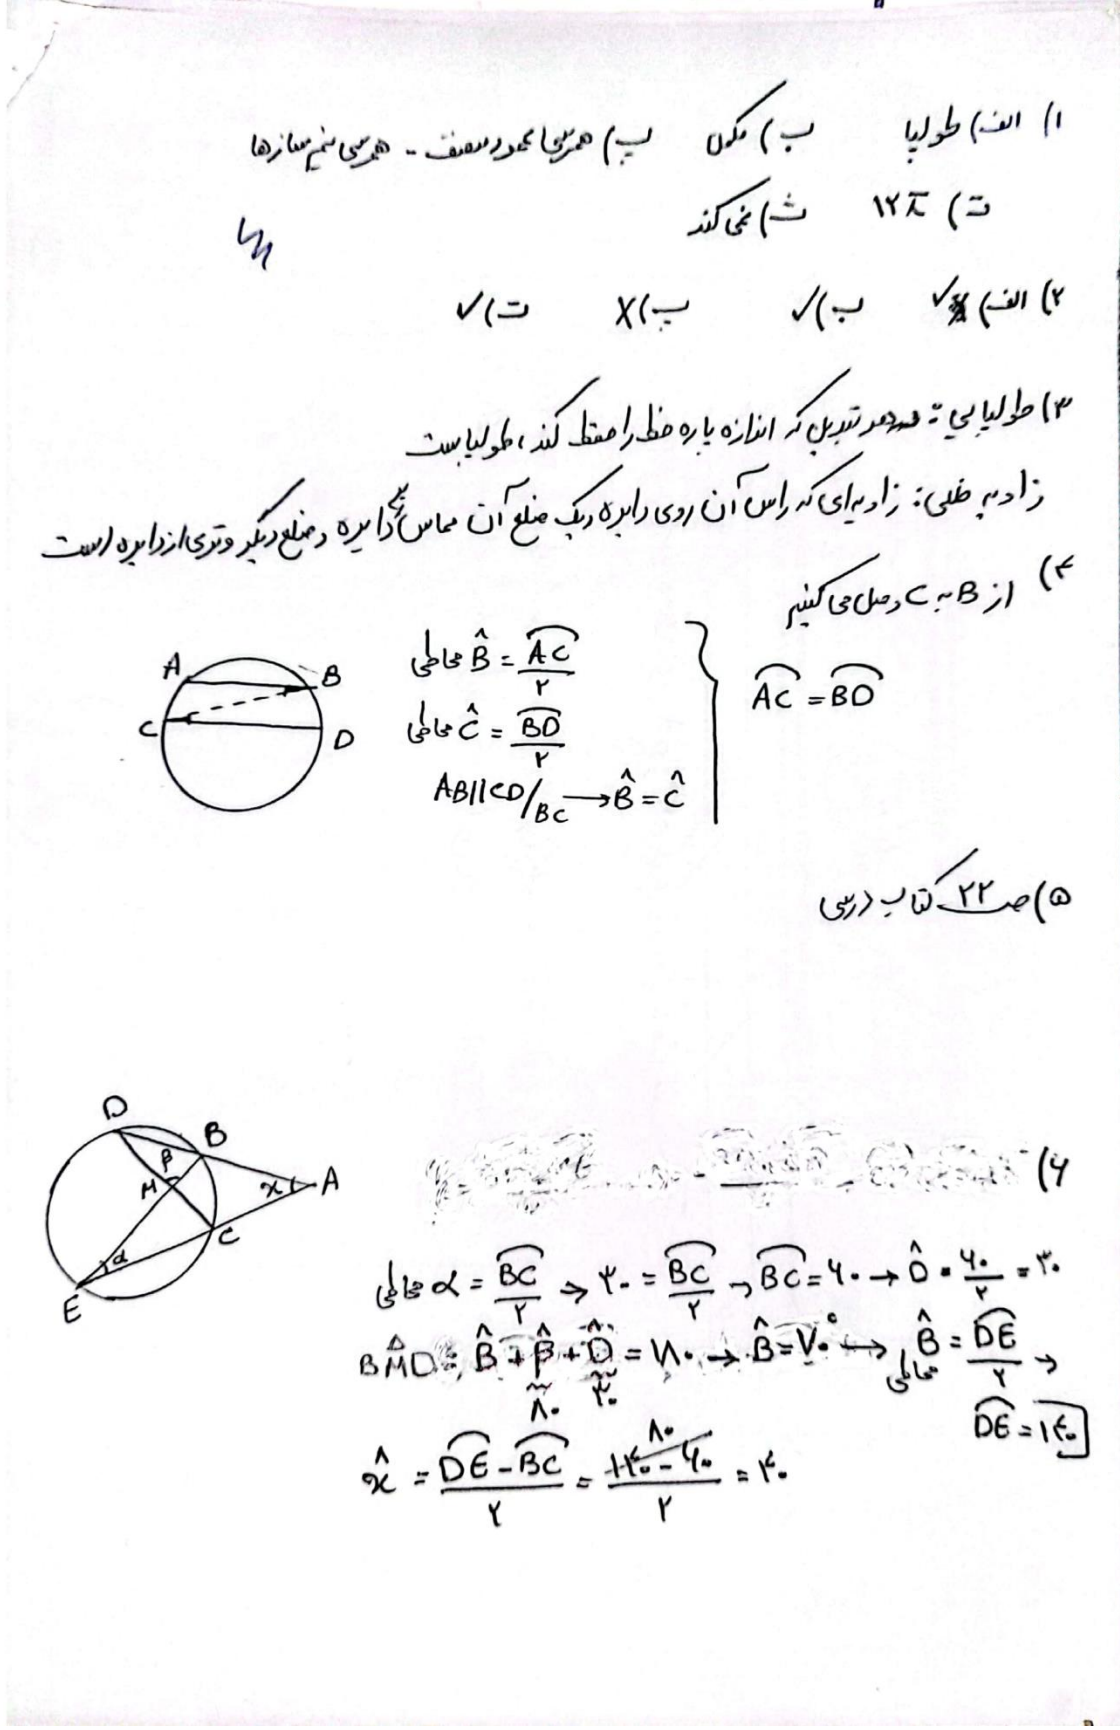 ۱) الف) طولپا ب) مکمل پ) همرسی عمودمنصف - همرسی نیمسازها
ت) ۱۲π ث) نمی‌کند
۲) الف) ✓ ب) ✓ پ) X ت) ✓
۳) طولپایی: هر تبدیل که اندازه پاره خط را حفظ کند، طولپاست
زاویه ظلی: زاویه‌ای که راس آن روی دایره و یک ضلع آن مماس بر دایره و ضلع دیگر وتری از دایره است
۴) از B به C وصل می‌کنیم
A B C D
محاطی B̂ = AC͡/۲
محاطی Ĉ = BD͡/۲
AB||CD/BC → B̂ = Ĉ
AC͡ = BD͡
۵) صـ ۲۲ کتاب درسی
۶)
D B A C E M x α β
محاطی α = BC͡/۲ → ۳۰ = BC͡/۲ → BC͡ = ۶۰ → D̂ = ۶۰/۲ = ۳۰
BM̂D: B̂ + β̂ + D̂ = ۱۸۰ → B̂ = ۷۰° → محاطی B̂ = DE͡/۲ →
۸۰ ۳۰
DE͡ = ۱۴۰
x̂ = (DE͡ - BC͡)/۲ = (۱۴۰ - ۶۰)/۲ = ۴۰
۸۰